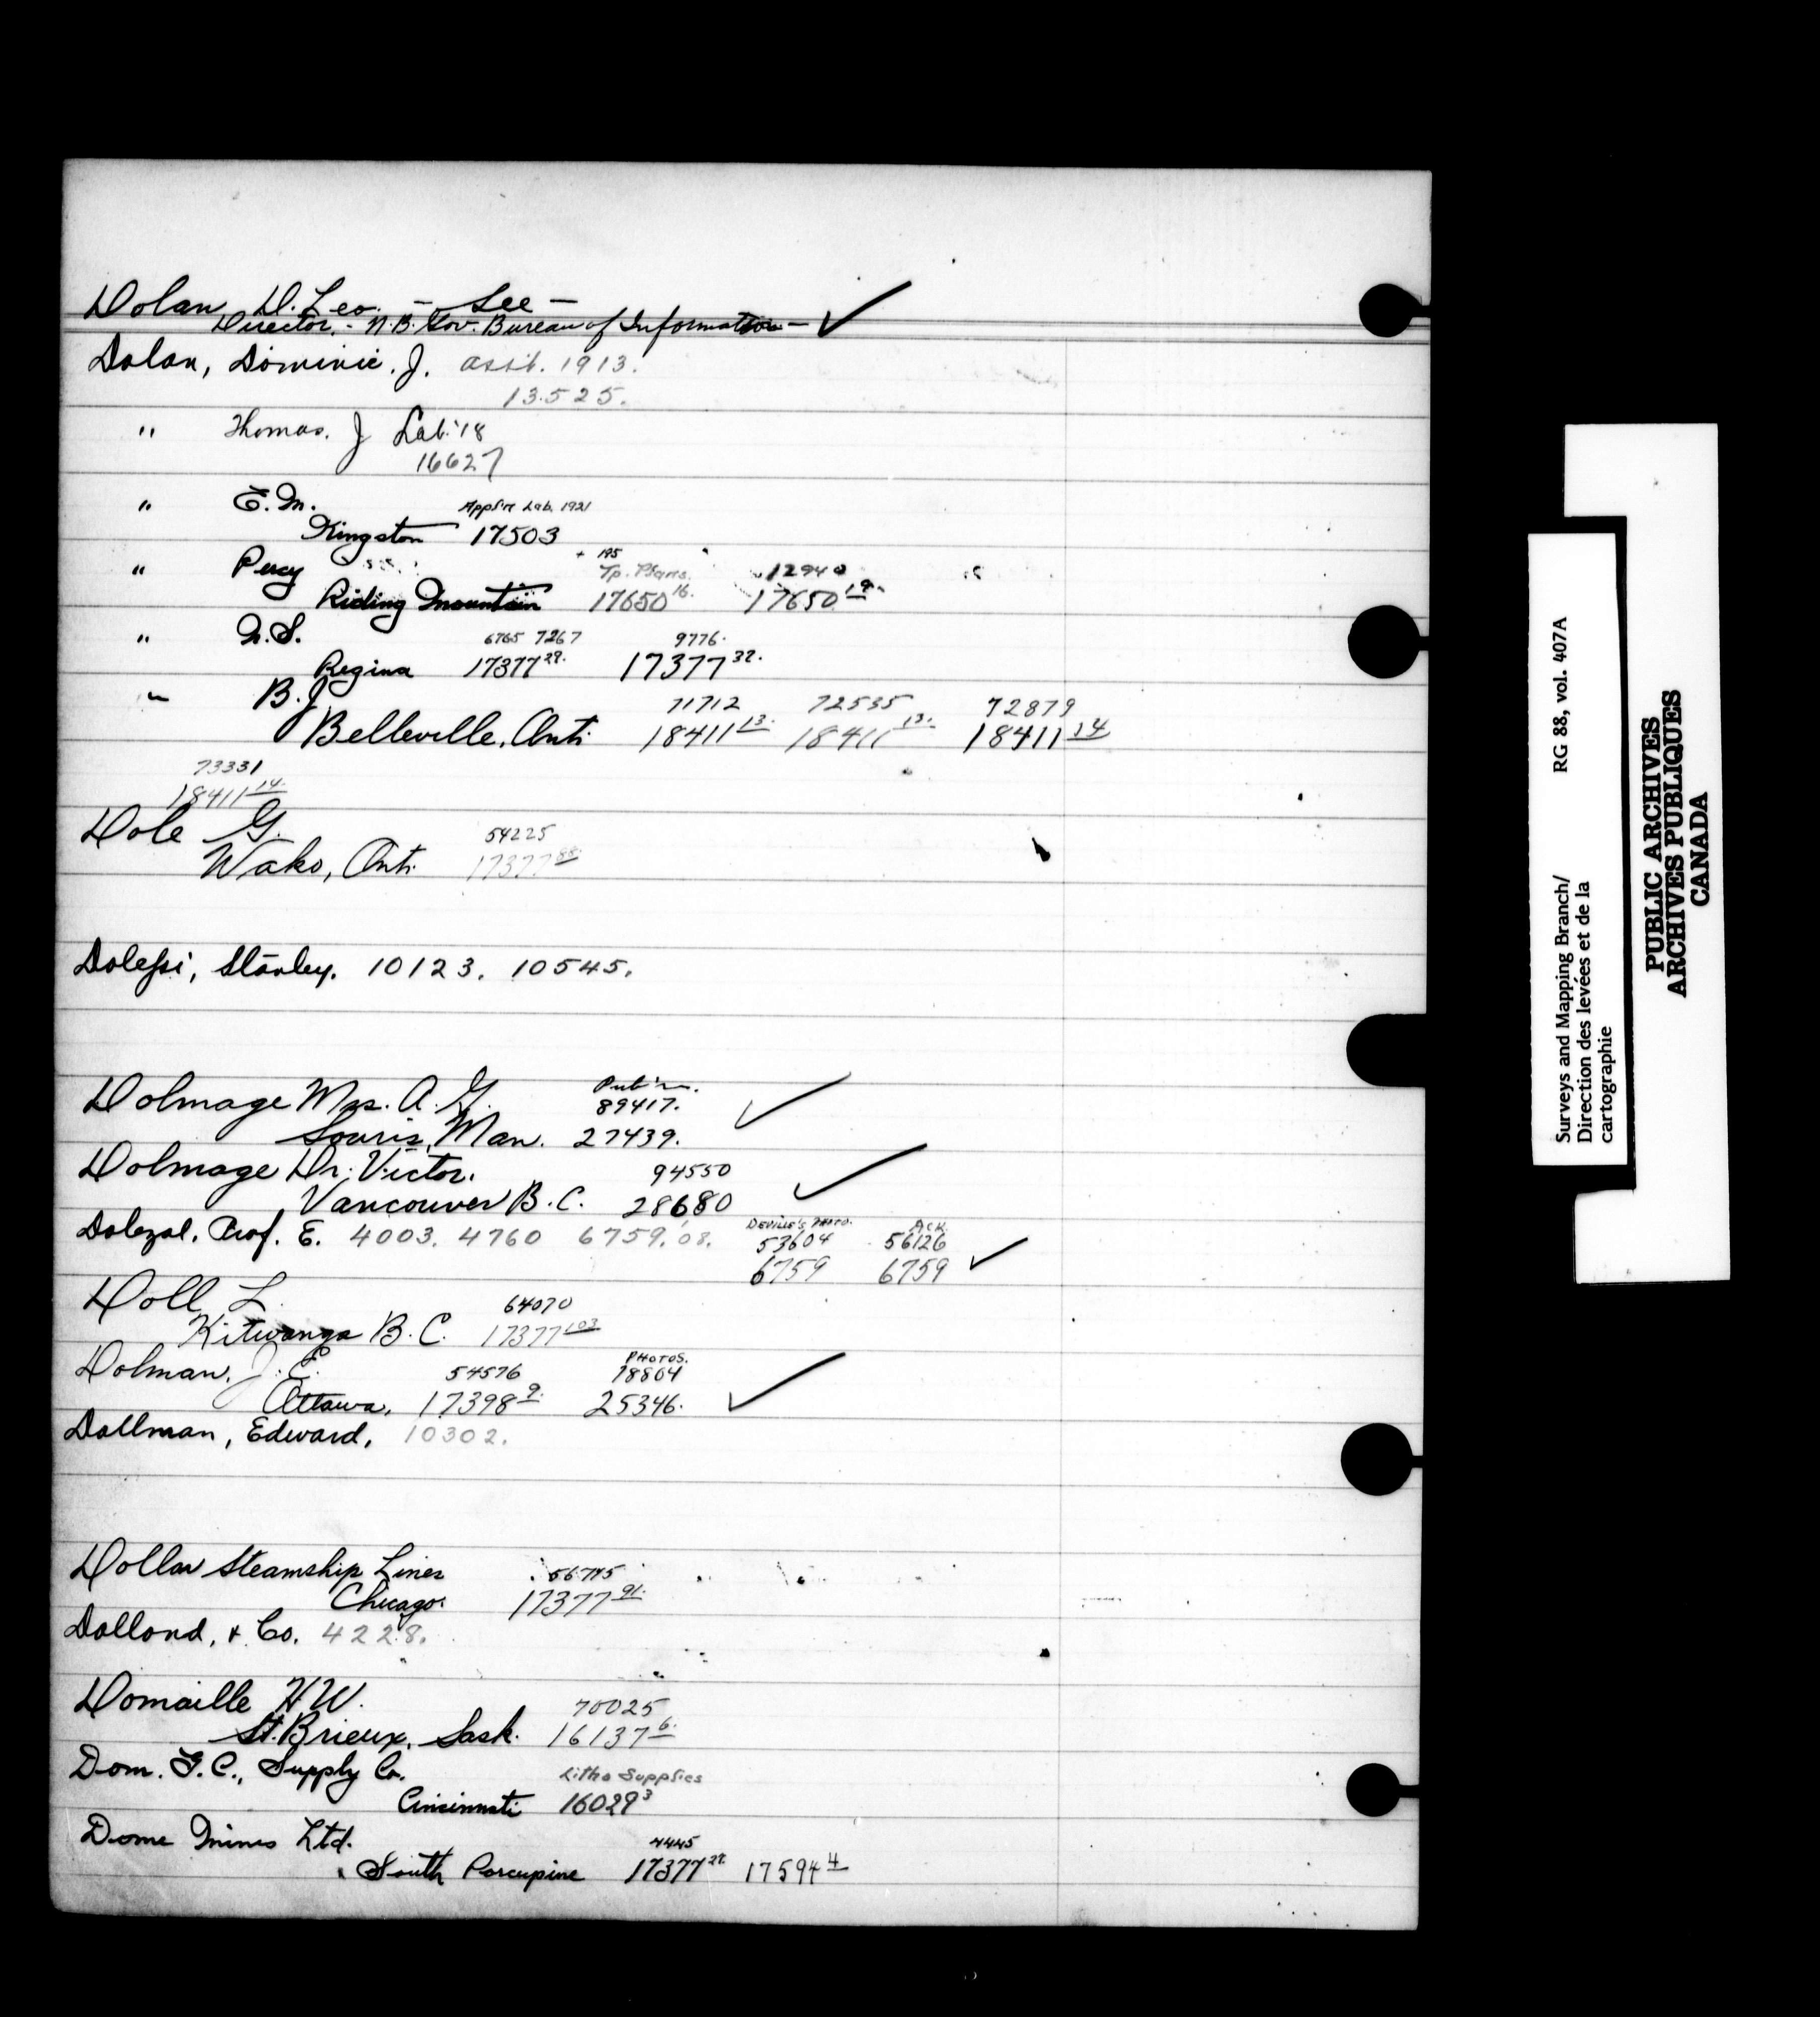 Dolan, D. Leo. - See -
Director. - N.B. Gov. Bureau of Information -
Dolan, Dominic. J. asst. 1913.
13525.
" Thomas. J Lab. '18
16627
" E. M. Appl'n Lab. 1921
Kingston 17503
" Percy Tp. Plans. 12940
Riding Mountain 17650 16. 17650 19.
" N. S. 6765 7267 9776.
Regina 17377 29. 17377 32.
" B. J 71712 72535 72879
Belleville, Ont. 18411 13. 18411 13. 18411 14
73331
18411 14.
Dole G. 54225
Wako, Ont. 17377 88.
Dolessi, Stanley. 10123. 10545.
Dolmage Mrs. A. G. Pub'ns.
89417.
Souris, Man. 27439.
Dolmage Dr. Victor. 94550
Vancouver B.C. 28680
Dolezal, Prof. E. 4003. 4760 6759.'08. DEVILLE'S PHOTO. ACK.
53604 56126
6759 6759
Doll L. 64070
Kitwanga B.C. 17377 103
Dolman, J. E. 54576 PHOTOS.
78864
Ottawa, 17398 9. 25346.
Dollman, Edward, 10302.
Dollar Steamship Lines 56745
Chicago. 17377 91.
Dollond, & Co. 4228.
Domaille H W. 70025
St. Brieux, Sask. 16137 6.
Dom. G. C., Supply Co. Litho Supplies
Cincinnati 16029 3
Dome Mines Ltd. 4445
South Porcupine 17377 27. 17594 4
Surveys and Mapping Branch/ RG 88, vol. 407A
Direction des levées et de la
cartographie
PUBLIC ARCHIVES
ARCHIVES PUBLIQUES
CANADA